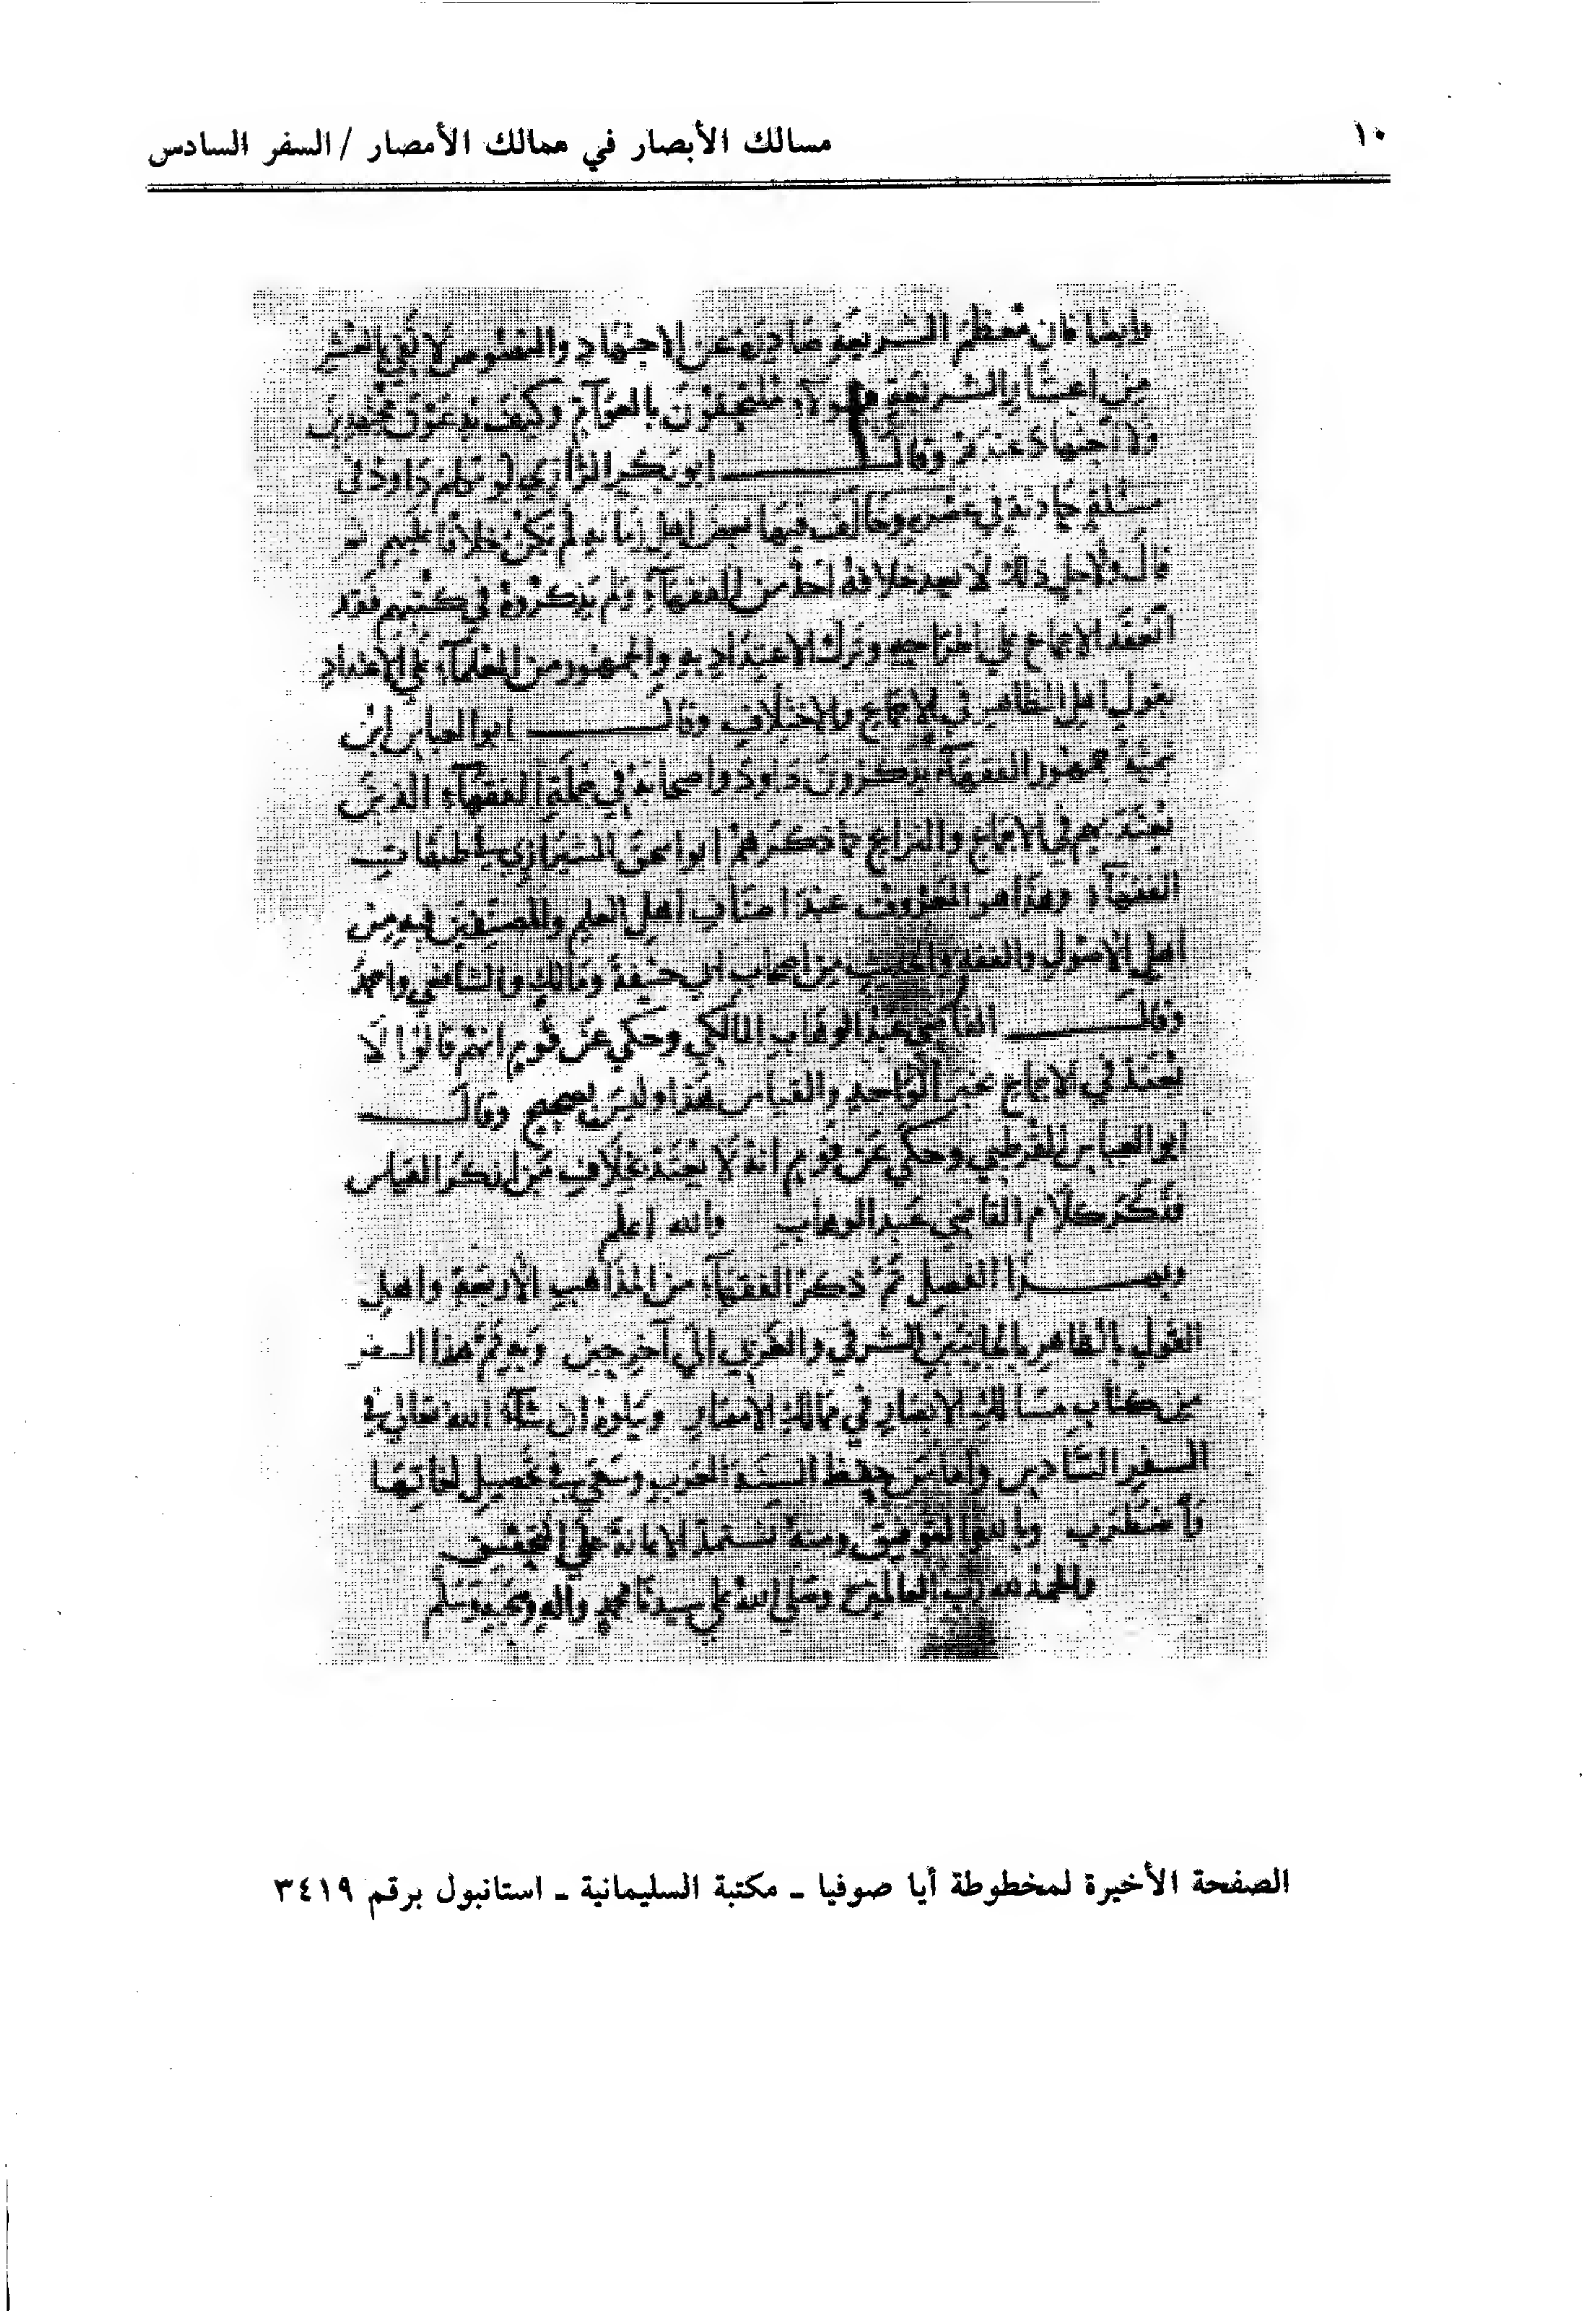 ١٠
مسالك الأبصار في ممالك الأمصار / السفر السادس
وايضا فان معظم الشريعة صادرة عن الاجتهاد والنصوص لا تفي بالعشر
من اعشار الشريعة وهولاء ملتحقون بالعوام وكيف يدعون مجتهدين
ولا اجتهاد عندهم وقال ابو بكر الرازي لو تكلم داود في
مسئلة حادثة في عصره وخالف فيها بعض اهل زمانه لم يكن خلافا عليهم
قال ولاجل ذلك لا يعد خلافه احد من الفقهاء ولم يذكروه في كتبهم فقد
انعقد الاجماع على اطراحه وترك الاعتداد به والجمهور من العلماء على الاعتداد
بقول اهل الظاهر في الاجماع والاختلاف وقال ابو العباس ابن
جمهور الفقهاء يذكرون داود واصحابه في جملة الفقهاء الذين
بهم في الاجماع والنزاع كما ذكرهم ابو اسحق الشيرازي في طبقات
الفقهاء وهذا هو المعروف عند اصناف اهل العلم والمصنفين فيه من
اهل الاصول والفقه والحديث من اصحاب ابي حنيفة ومالك والشافعي واحمد
وقال القاضي عبد الوهاب المالكي وحكي عن قوم انهم قالوا لا
يعتد في الاجماع بمنكر الواحد والقياس هذا وليس بصحيح وقال
ابو العباس القرطبي وحكي عن قوم انه لا يعتد بخلاف من انكر القياس
فذكر كلام القاضي عبد الوهاب والله اعلم
وبهذا الفصل تم ذكر الفقهاء من المذاهب الأربعة واهل
القول بالظاهر بالجانبين الشرقي والغربي الى آخر حين وبه تم هذا السفر
من كتاب مسالك الابصار في ممالك الامصار ويتلوه ان شاء الله تعالى في
السفر السادس واما من حفظ السنة العرب وسعى في تحصيل لغاتها
فاضطرب وبالله التوفيق ومنه نستمد الاعانة على التحقيق
والحمد لله رب العالمين وصلى الله على سيدنا محمد واله وصحبه وسلم
الصفحة الأخيرة لمخطوطة أيا صوفيا ـ مكتبة السليمانية ـ استانبول برقم ٣٤١٩